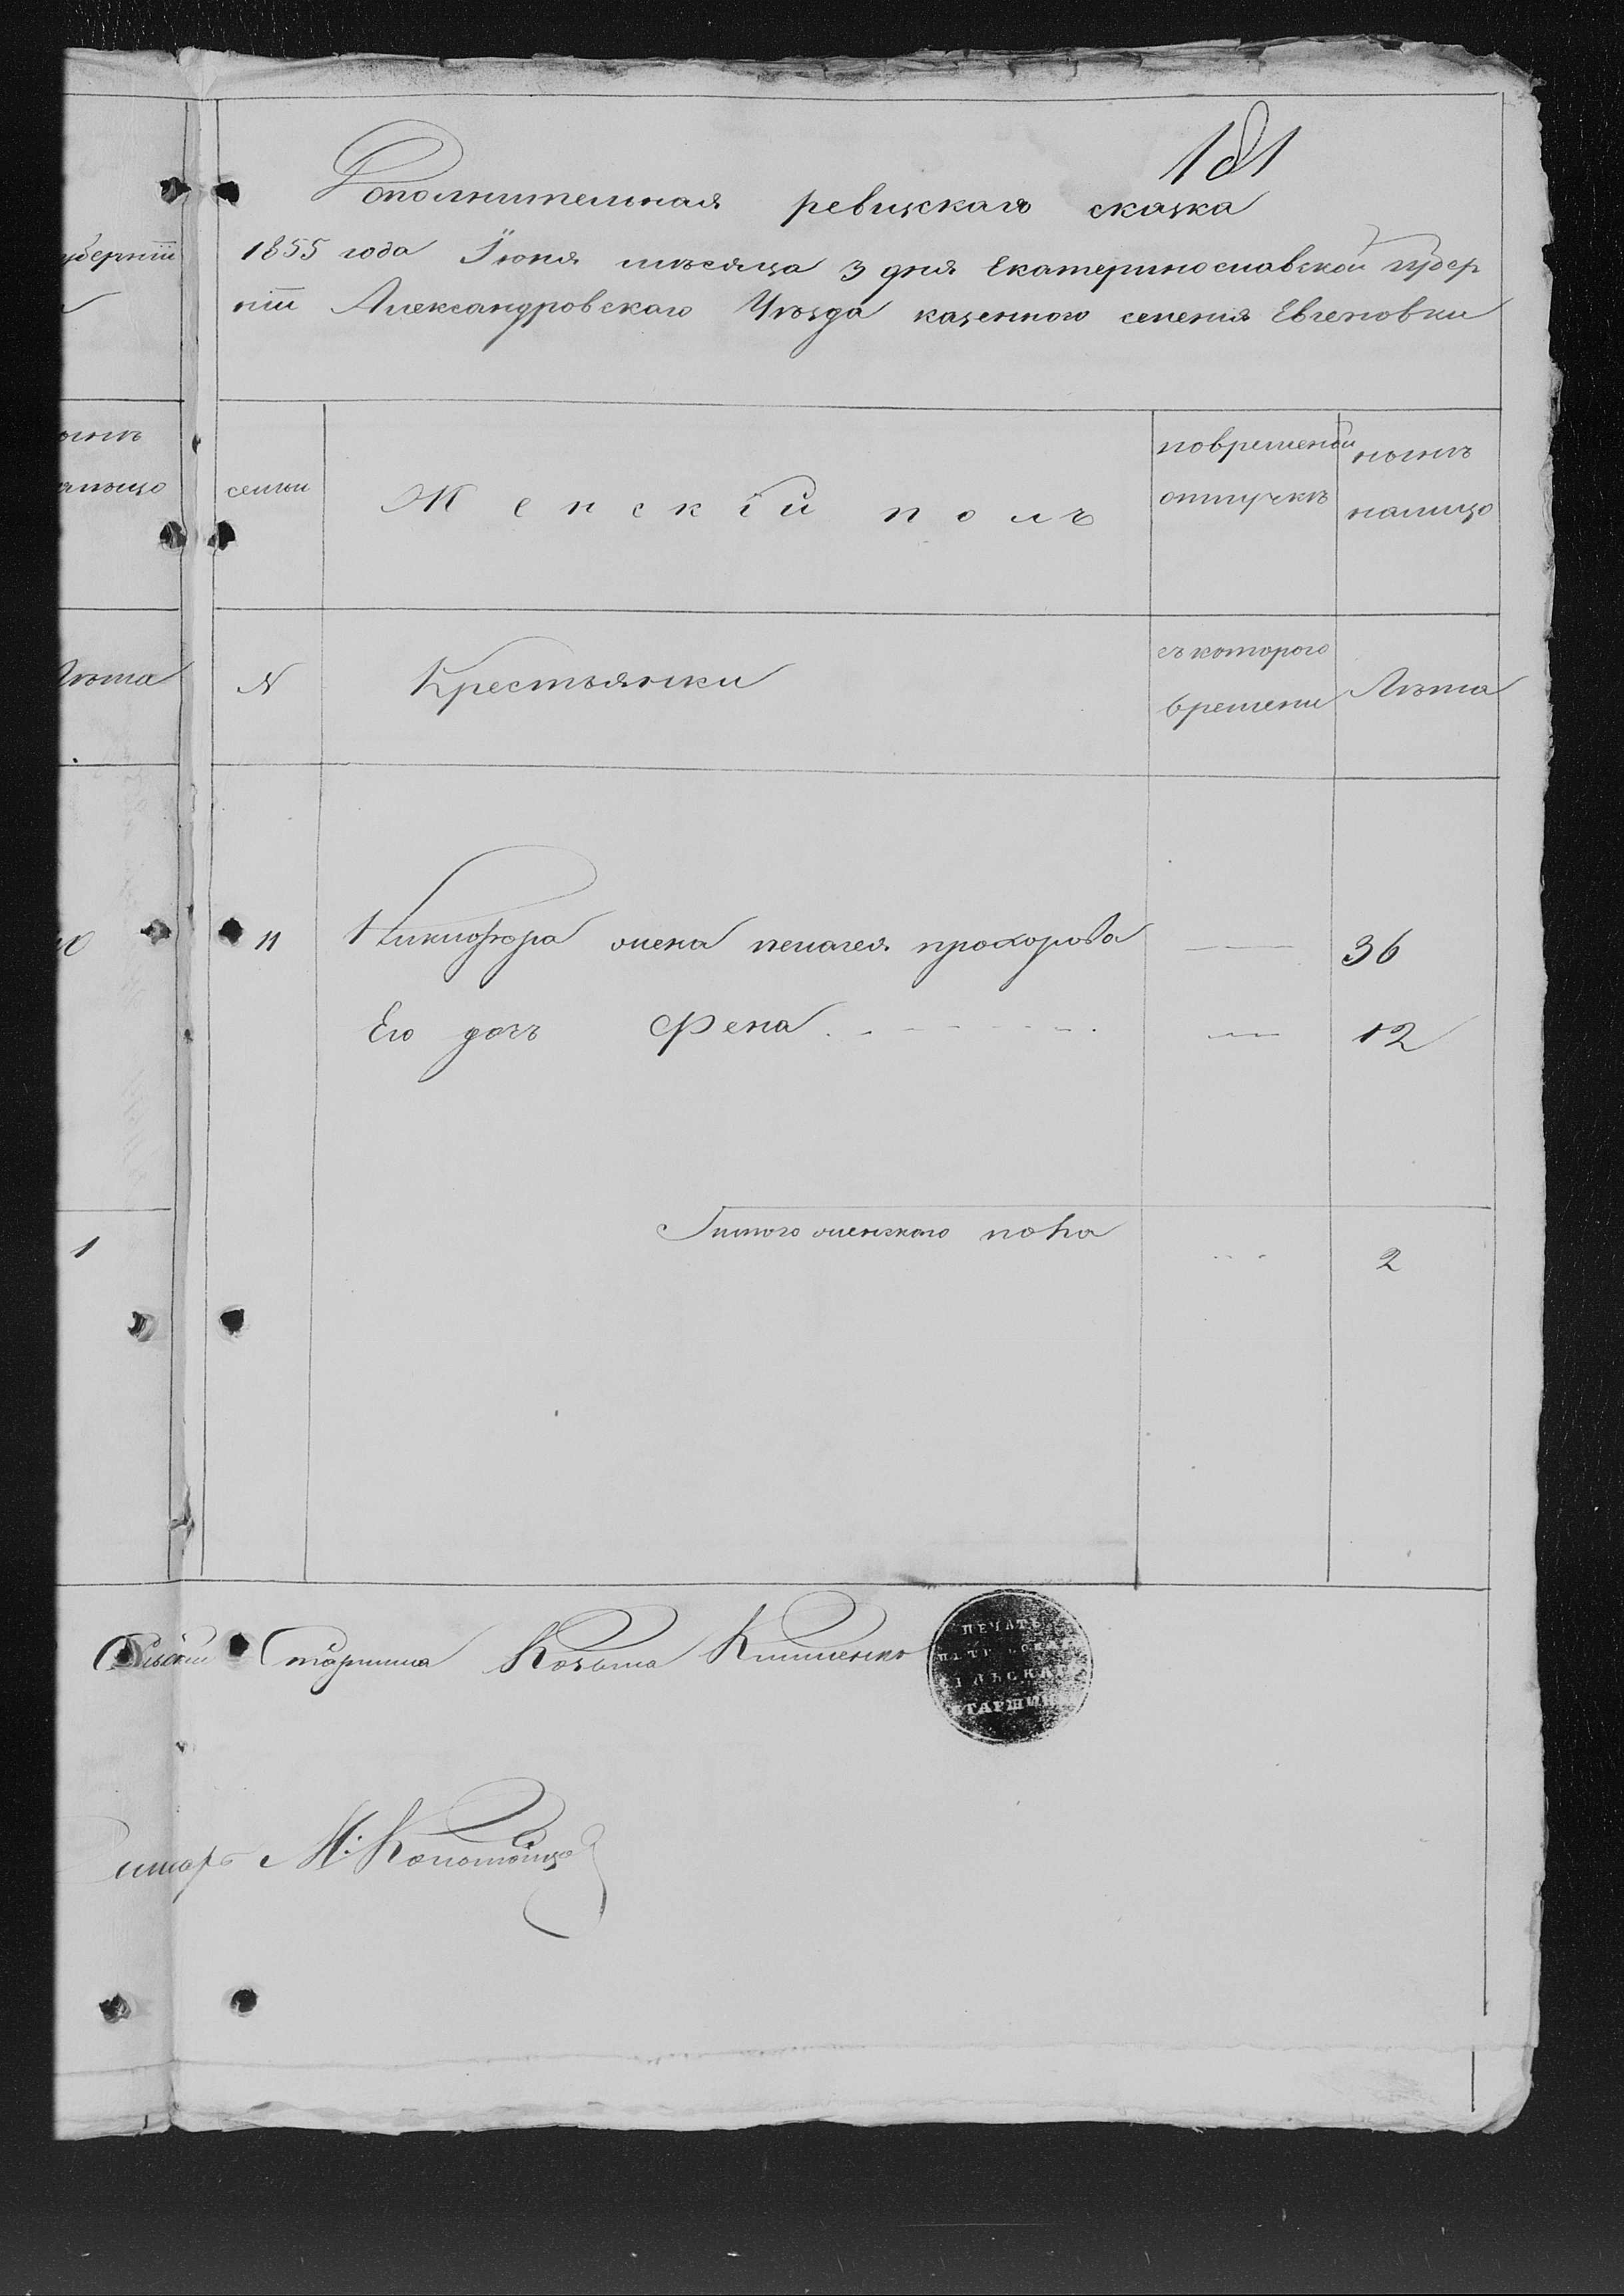 181
Дополнительная ревизская сказка
1855 года Іюня мѣсяца 3 дня Екатеринославской губер
ніи Александровскаго Уѣзда казенного селения Евгеновки
семьи
Женскій полъ
повременой отлучкѣ
нынѣ налицо
N
Крестьянки
съ которого времени
Лѣта
11 Никифора жена пелагея прохорова — 36
Его дочь Фена — 12
Итого женского пола 2
Сельскій Старшина Козьма Клименко
ПЕЧАТЬ
СТАРШИН
Писарь М:
убернiи
Лѣта
1